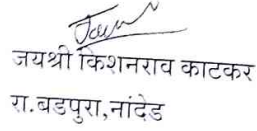 जयश्री किशनराव काटकर
रा.बडपुरा,नांदेड